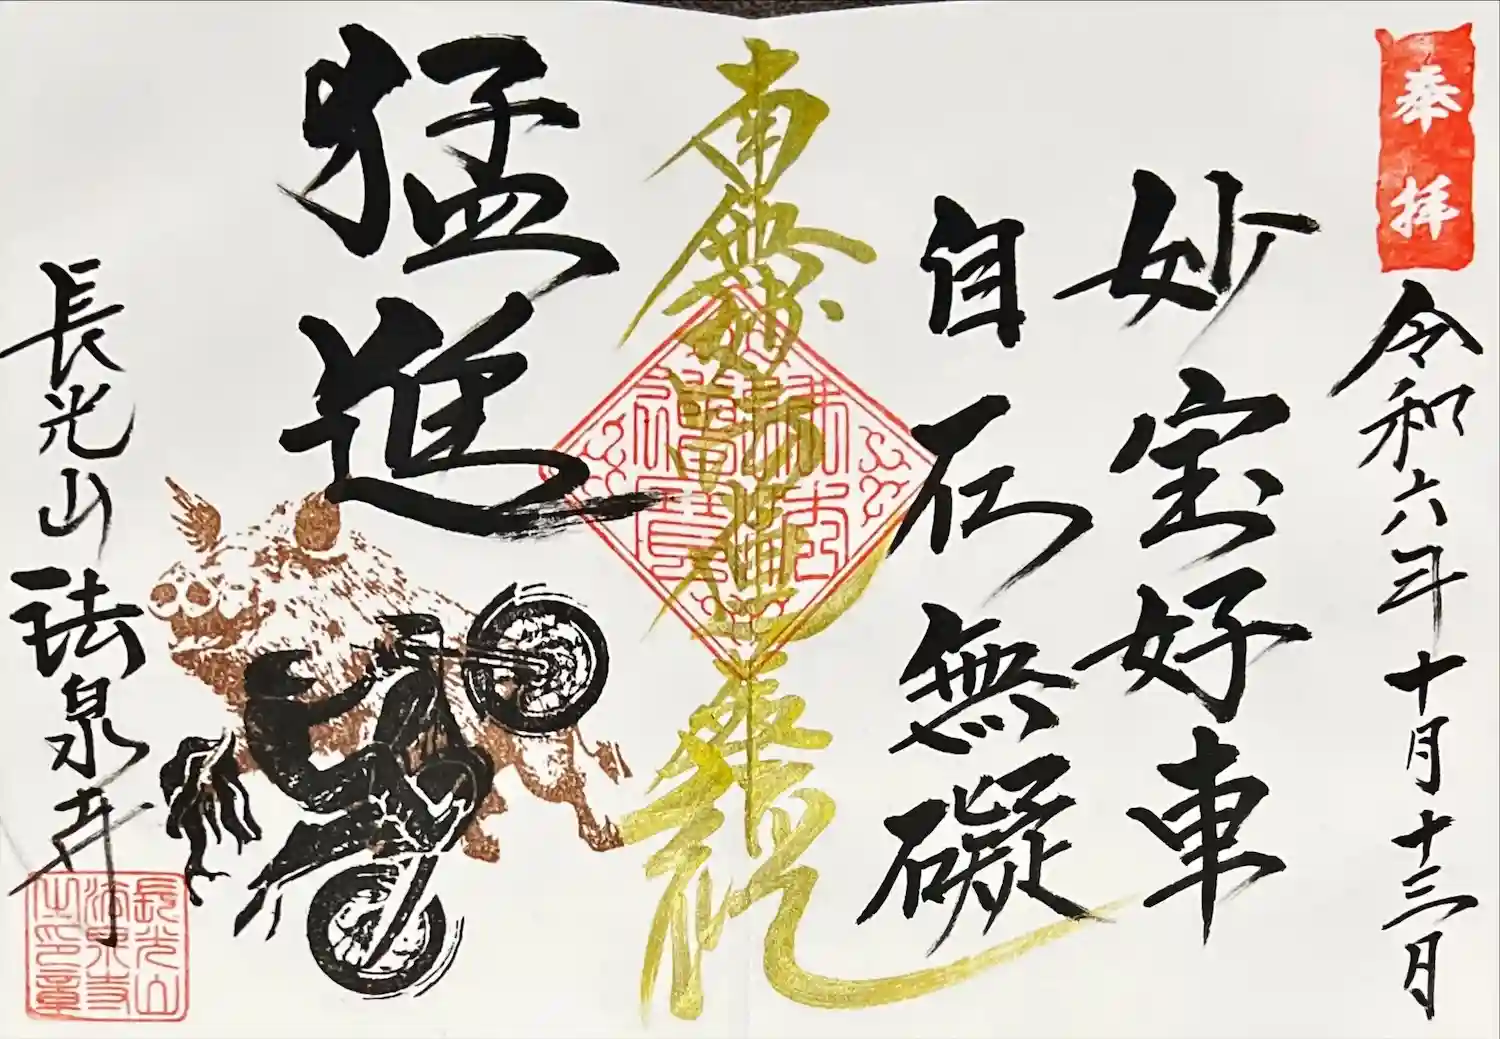 奉拝
令和六年十月十三日
妙宝好車
自在無礙
南無妙法蓮華経
猛進
長光山 法泉寺
長光山
法泉寺